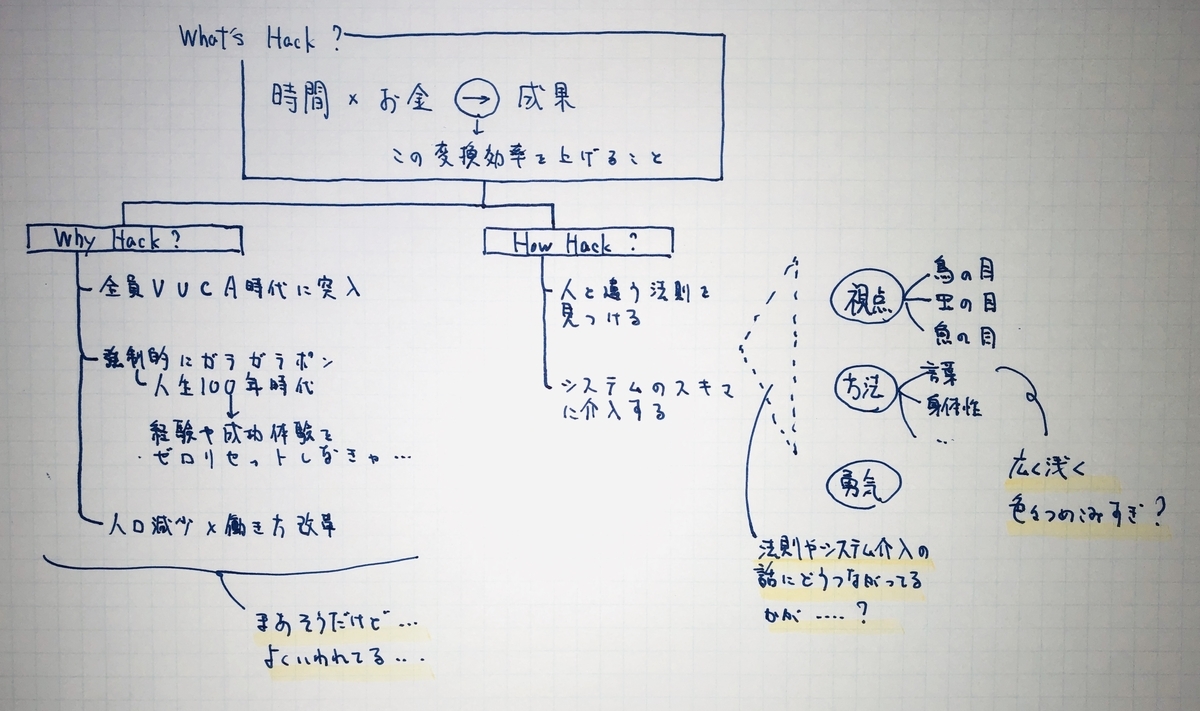 What's Hack ?
時間 × お金 → 成果
↓
この変換効率を上げること
Why Hack ?
全員VUCA時代に突入
強制的にガラガラポン
人生100年時代
↓
経験や成功体験を
ゼロリセットしなきゃ…
人口減少×働き方改革
まあそうだけど…
よくいわれてる…
How Hack ?
人と違う法則を
見つける
システムのスキマ
に介入する
視点
鳥の目
虫の目
魚の目
方法
言葉
身体性
…
勇気
法則やシステム介入の
話にどうつながってる
かが ....?
広く浅く
色々つめこみすぎ?